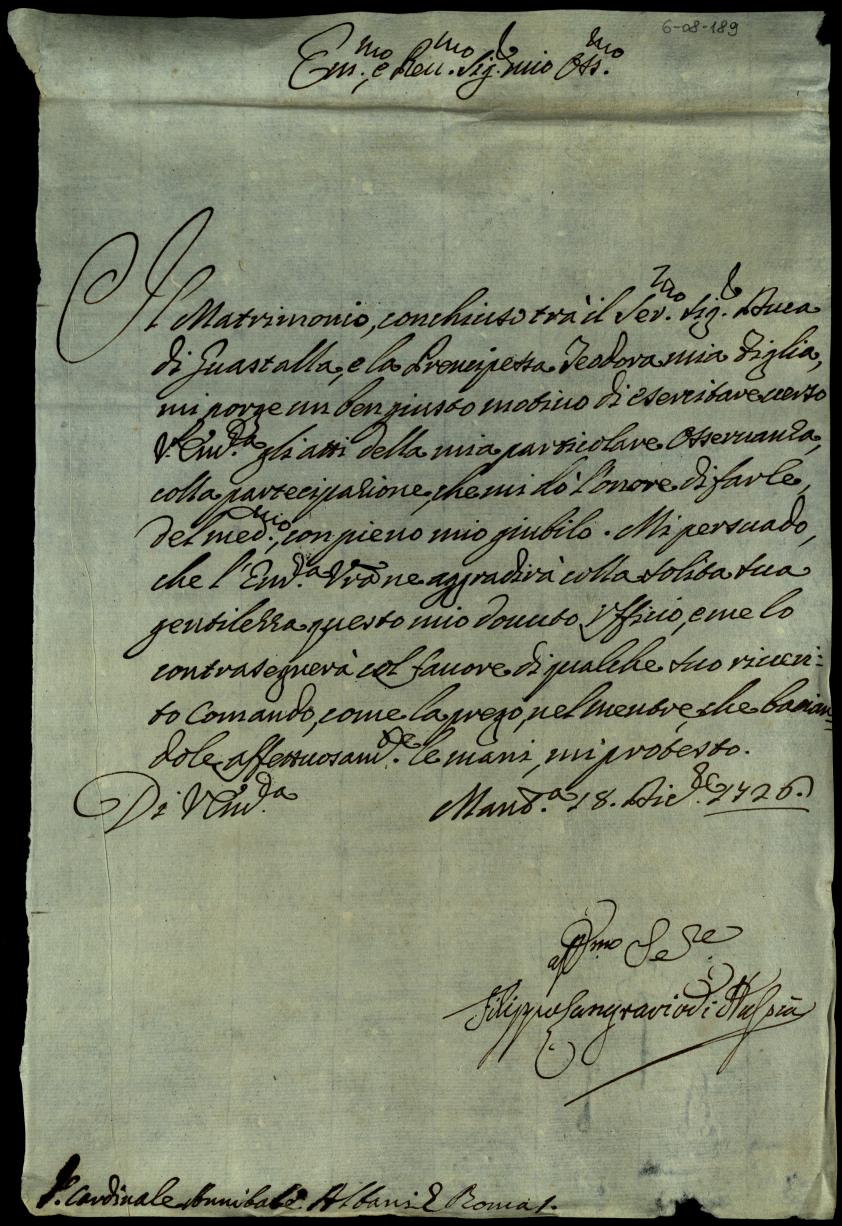 6-08-189
Em.mo e Reu.mo Sig.r mio Oss.mo
Il Matrimonio, conchiuso trà il Ser.mo Sig.r Duca
di Guastalla, e la Prencipessa Teodora mia Figlia,
mi porge un ben giusto motiuo di esercitare uerso
V. Em.za gli atti della mia particolare Osseruanza,
colla partecipazione, che mi dò l'onore di farle,
del med.mo, con pieno mio giubilo. Mi persuado,
che l'Em.za Vra ne aggradirà colla solita sua
gentilezza questo mio douuto Vfficio, e me lo
contrasegnerà col fauore di qualche suo riueri:
to Comando, come la prego, nel mentre, che bacian-
dole affettuosam.te le mani, mi protesto.
Di V. Em.za Mant.a 18. Dic.re 1726.
aff.mo Se.re
Filippo Langravio di Hassia
S.r Cardinale Annibale Albani Roma